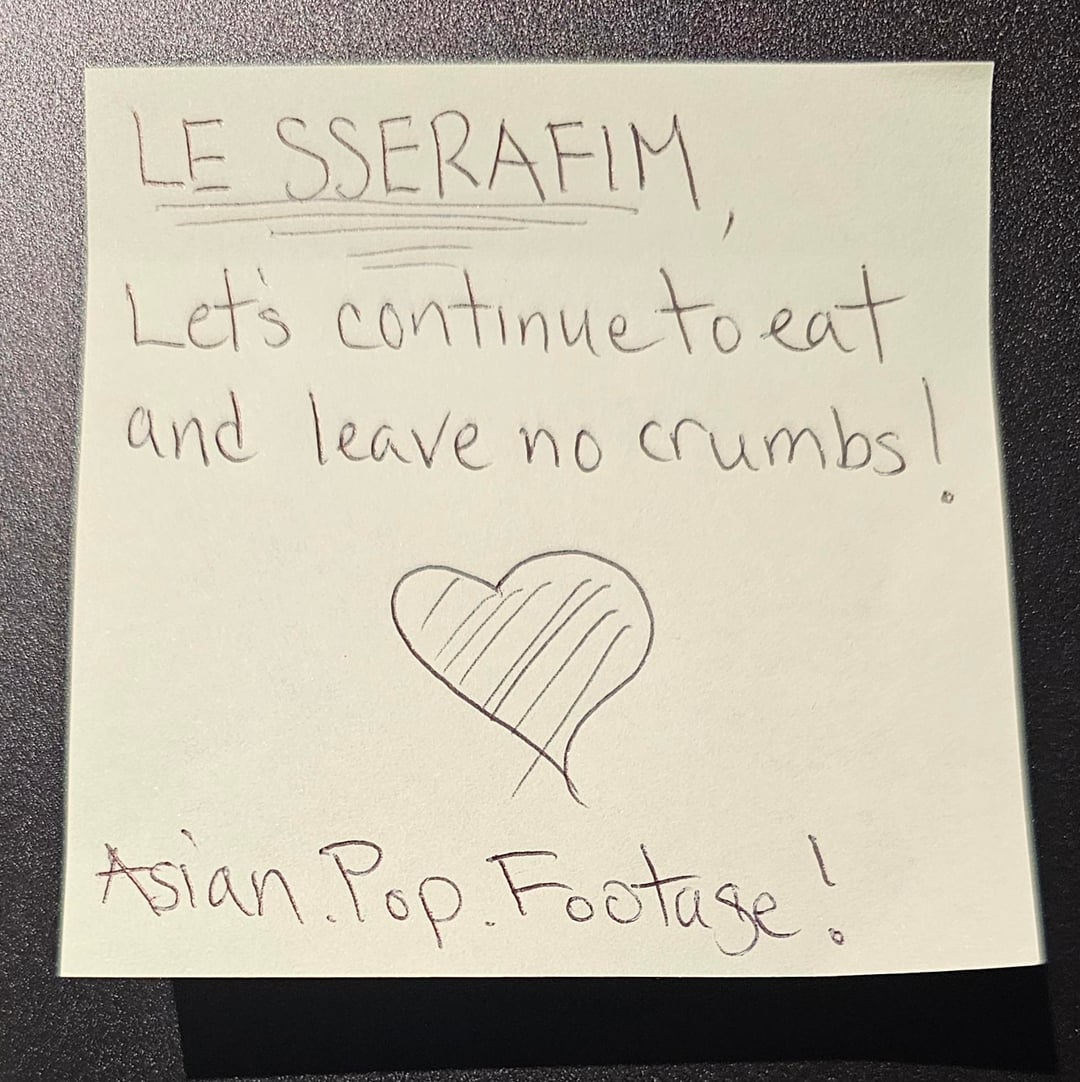 LE SSERAFIM,
Let's continue to eat
and leave no crumbs!
Asian.Pop.Footage!